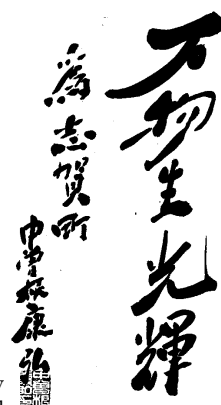 万物生光輝
為志賀町
中曽根康弘